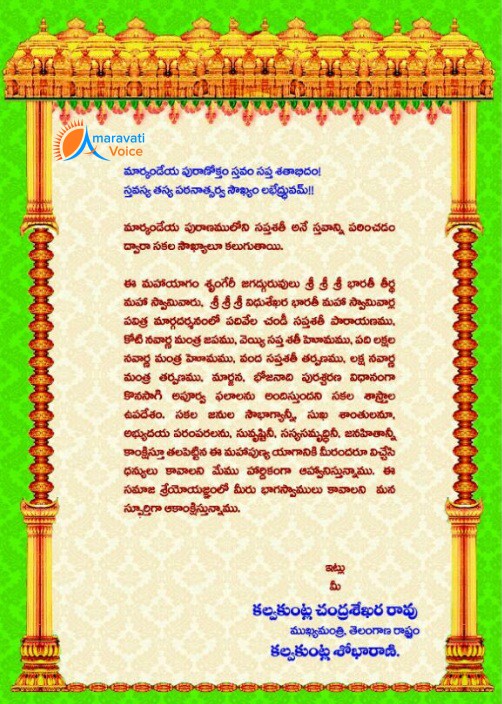 Amaravati
Voice
మార్కండేయ పురాణోక్తం స్తవం సప్త శతాభిదం!
స్తవస్య తస్య పఠనాత్సర్వ సౌఖ్యం లభేద్ధ్రువమ్!!
మార్కండేయ పురాణములోని సప్తశతీ అనే స్తవాన్ని పఠించడం
ద్వారా సకల సౌఖ్యాలూ కలుగుతాయి.
ఈ మహాయాగం శృంగేరీ జగద్గురువులు శ్రీ శ్రీ శ్రీ భారతీ తీర్థ
మహా స్వామివారు, శ్రీ శ్రీ శ్రీ విధుశేఖర భారతీ మహా స్వామివార్ల
పవిత్ర మార్గదర్శనంలో పదివేల చండీ సప్తశతీ పారాయణము,
కోటి నవార్ణ మంత్ర జపము, వెయ్యి సప్త శతీ హెూమము, పది లక్షల
నవార్ణ మంత్ర హెూమము, వంద సప్తశతీ తర్పణము, లక్ష నవార్ణ
మంత్ర తర్పణము, మార్జన, భోజనాది పురశ్చరణ విధానంగా
కొనసాగి అపూర్వ ఫలాలను అందిస్తుందని సకల శాస్త్రాల
ఉపదేశం. సకల జనుల సౌభాగ్యాన్నీ, సుఖ శాంతులనూ,
అభ్యుదయ పరంపరలను, సువృష్టినీ, సస్యసమృద్ధినీ, జనహితాన్నీ
కాంక్షిస్తూ తలపెట్టిన ఈ మహాపుణ్య యాగానికి మీరందరూ విచ్చేసి
ధన్యులు కావాలని మేము హార్దికంగా ఆహ్వానిస్తున్నాము. ఈ
సమాజ శ్రేయోయజ్ఞంలో మీరు భాగస్వాములు కావాలని మన
స్ఫూర్తిగా ఆకాంక్షిస్తున్నాము.
ఇట్లు
మీ
కల్వకుంట్ల చంద్రశేఖర రావు
ముఖ్యమంత్రి, తెలంగాణ రాష్ట్రం
కల్వకుంట్ల శోభారాణి.